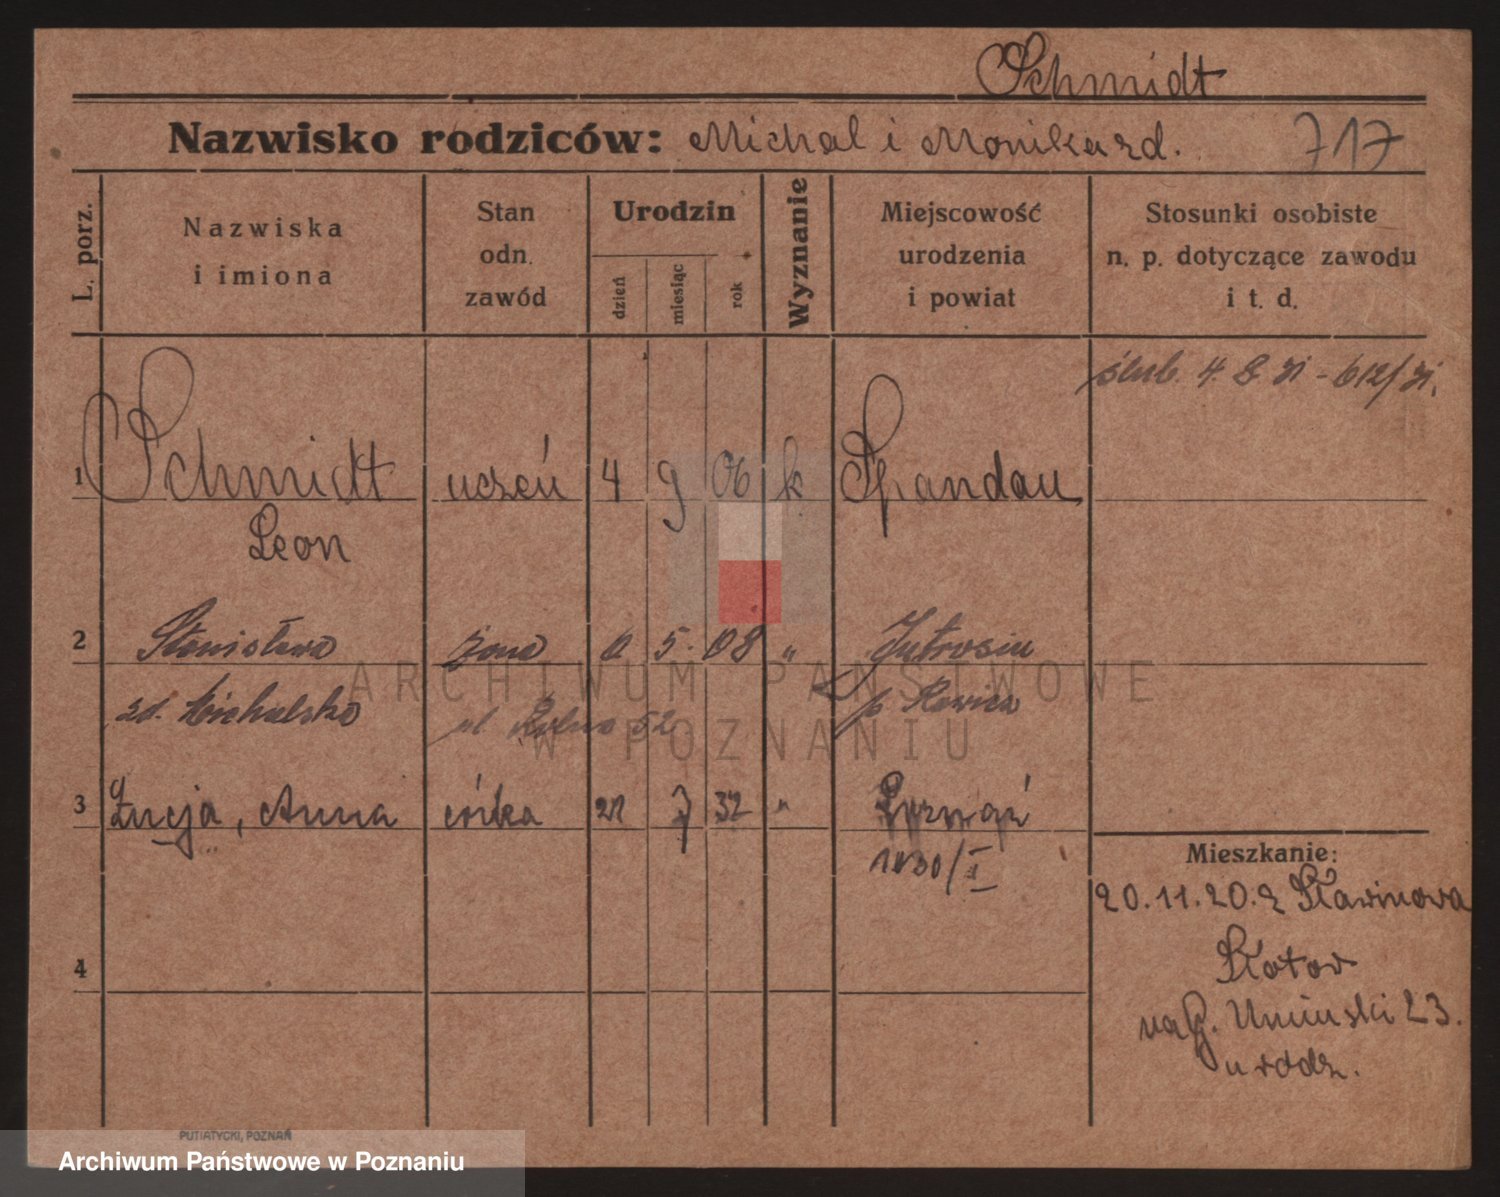 Schmidt
Nazwisko rodziców: Michal i Monika zd. 717
L. porz.
Nazwiska
i imiona
Stan
odn.
zawód
Urodzin
dzień
miesiąc
rok
Wyznanie
Miejscowość
urodzenia
i powiat
Stosunki osobiste
n. p. dotyczące zawodu
i t. d.
ślub. 4. 8. 31 - 612/31.
1 Schmidt uczeń 4 9 06 k Spandau
Leon
2 Stanisława żona 5. 08 " Jutrosin
zd. Michalska p. Rawicz
ul. Rolna 52
3 Łucja, Anna córka 21 7 32 " Poznań
1030/I
Mieszkanie:
20.11.20. z
4
Umiński 23.
u rodz.
PUTIATYCKI, POZNAŃ
ARCHIWUM PAŃSTWOWE
W POZNANIU
Archiwum Państwowe w Poznaniu